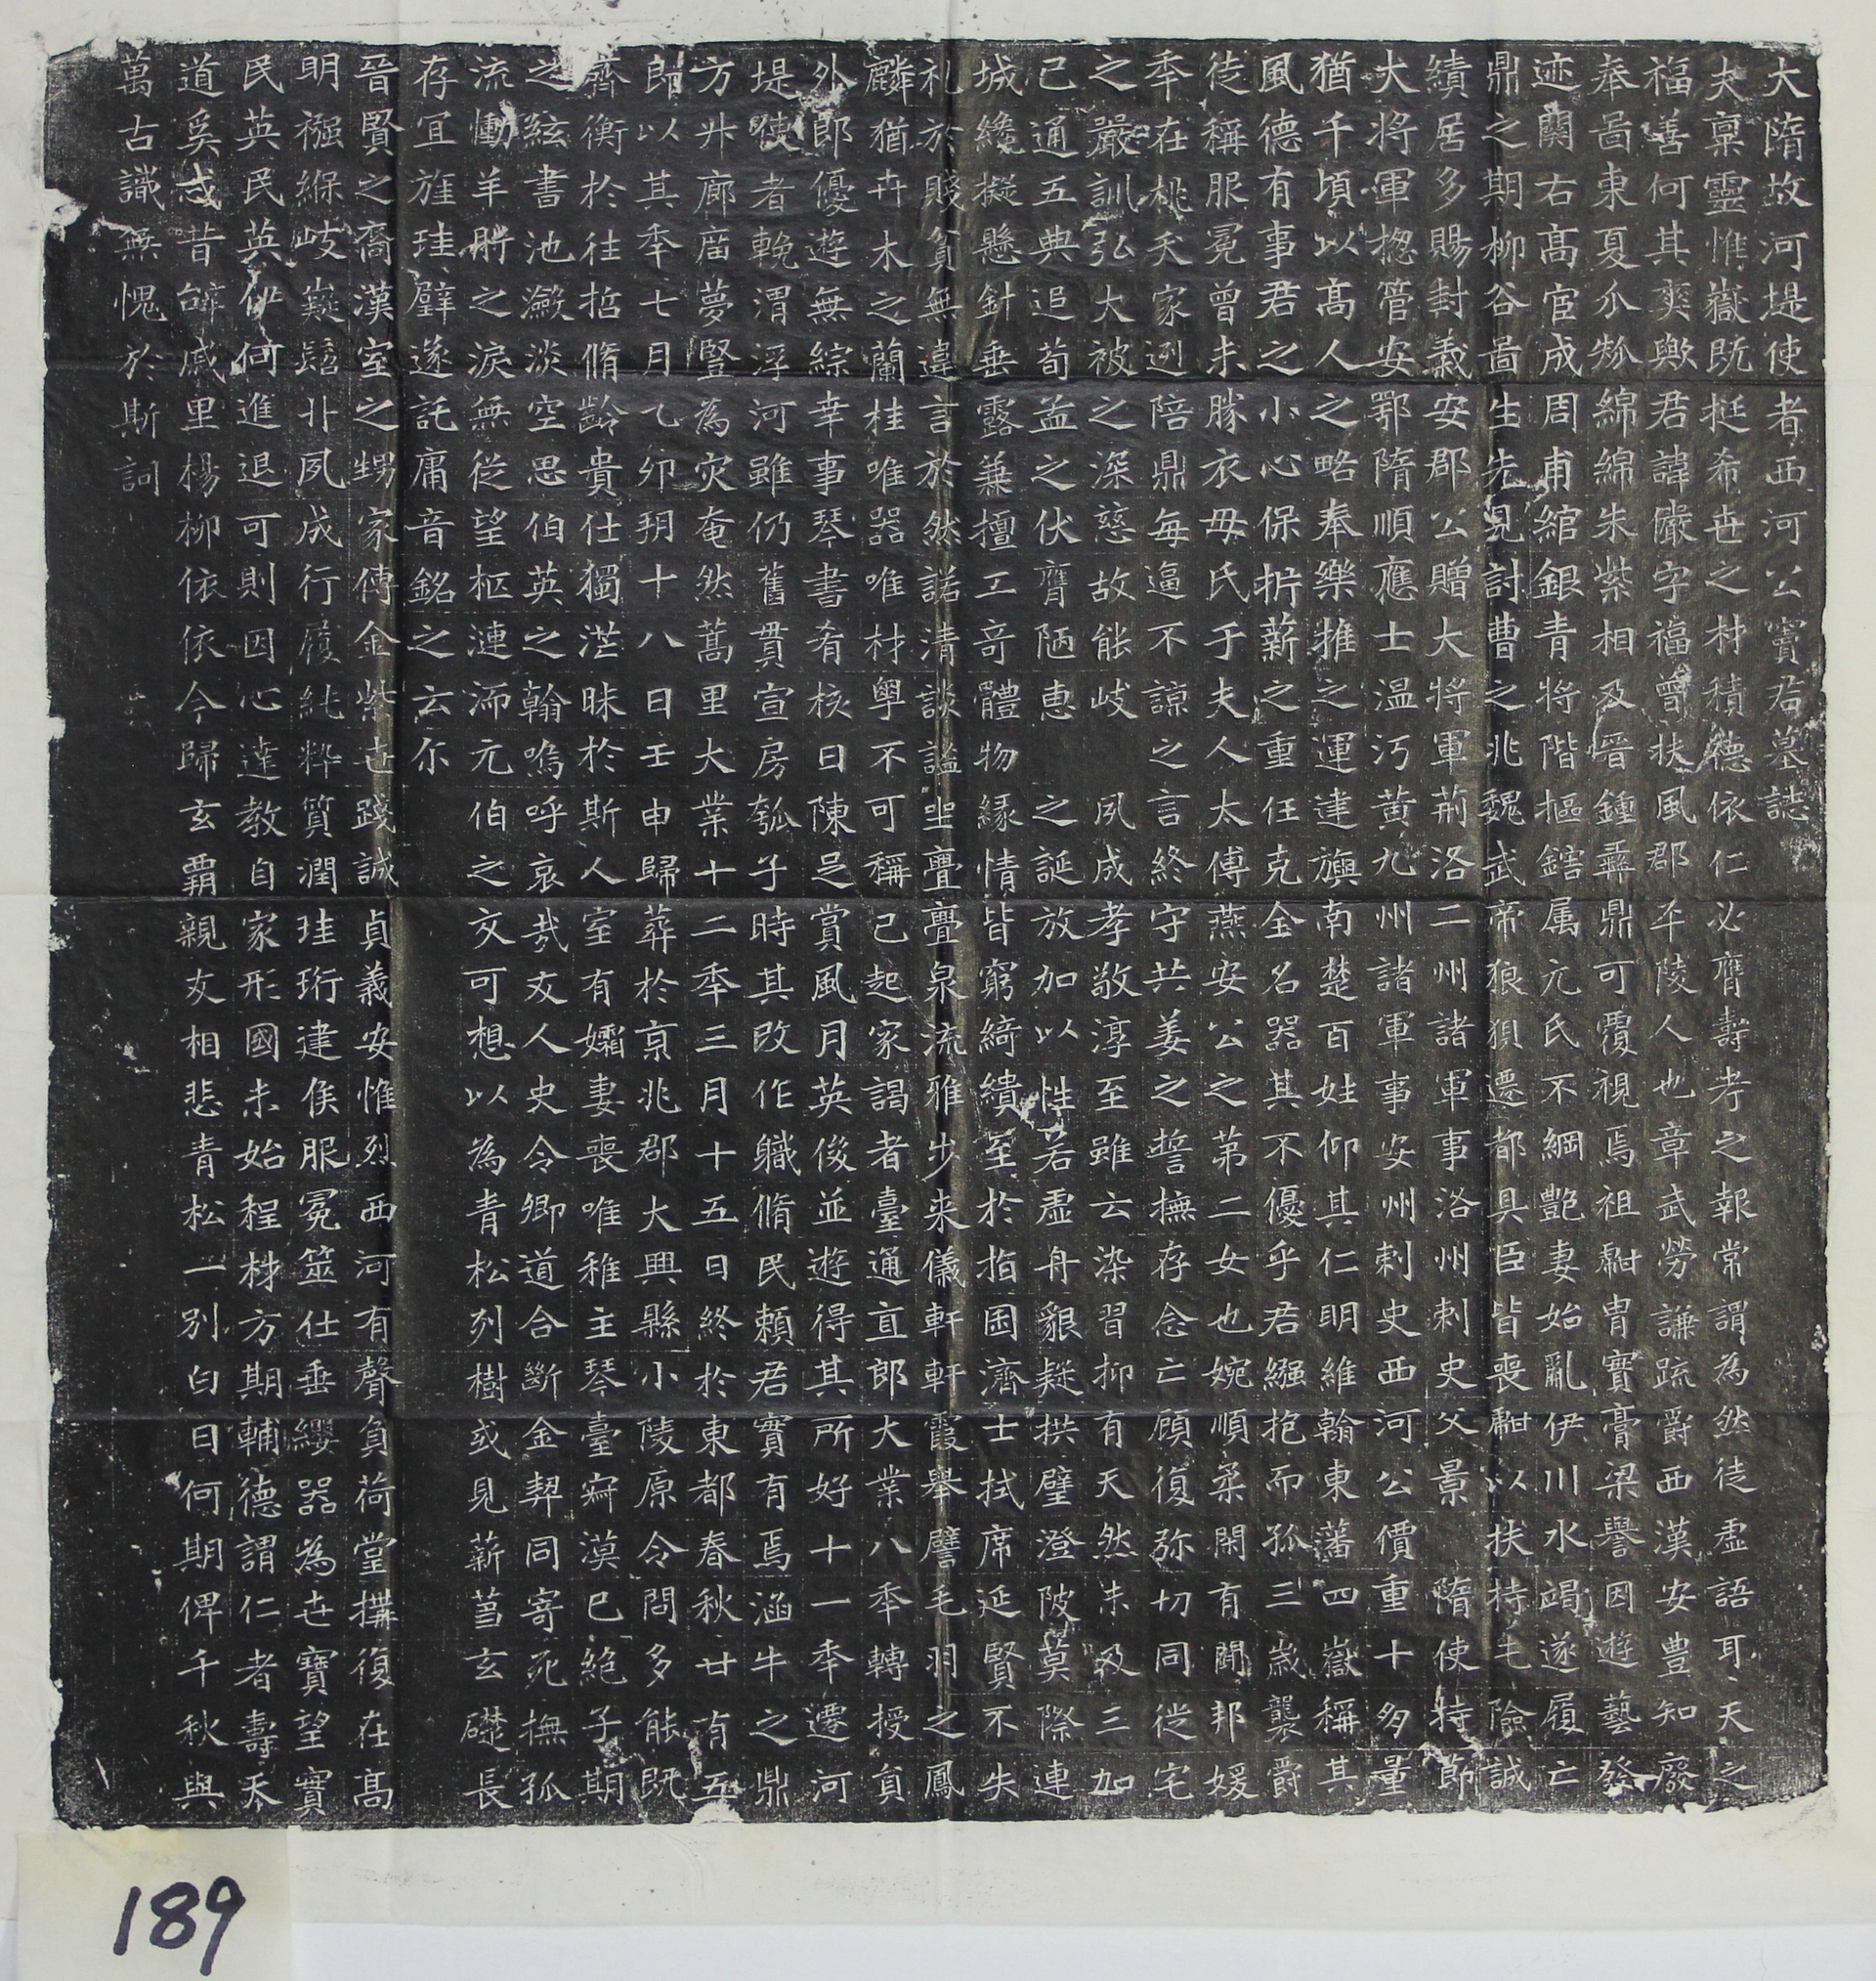 大隋故河堤使者西河公竇君墓誌
夫稟靈惟嶽既挺希世之材積德依仁必膺壽考之報常謂為然徒虛語耳天之
福善何其爽歟君諱儼字福曾扶風郡平陵人也章武勞謙疏爵西漢安豊知廢
奉啚東夏尒弥綿綿朱紫相及晋鍾彝鼎可覆視焉祖勷胄實膏梁譽因遊藝發
迹關右高官成周甫綰銀青將階摳鎋属元氏不綱艷妻始亂伊川水竭遂履亡
鼎之期柳谷啚生先見討曹之兆魏武帝狼狽遷都具臣皆喪勷以扶持乇險誠
績居多賜封義安郡公贈大將軍荊洛二州諸軍事洛州刺史父景隋使特節
大將軍揔管安鄂隋順應士温沔黄九州諸軍事安州刺史西河公價重十夛量
猶千頃以高人之略奉樂推之運建旟南楚百姓仰其仁明維翰東蕃四嶽稱其
風德有事君之小心保折薪之重任克全名器其不優乎君繦抱而孤三歲襲爵
徒稱服冕曾未勝衣毋氏于夫人太傅燕安公之第二女也婉順柔閑有聞邦媛
秊在桃夭家迾陪鼎每逼不諒之言終守共姜之誓撫存念亡顧復弥切同從宅
之嚴訓弘大被之深慈故能岐 夙成孝敬淳至雖云染習抑有天然未及三加
已通五典追荀益之伏膺陋惠 之誕放加以性若虛舟貌疑拱璧澄陂莫際連
城纔擬懸針垂露兼擅工竒體物緣情皆窮綺繢至於指囷濟士拭席延賢不失
礼於賤貧無違言於然諾清談謐坐亹亹泉流雅步来儀軒軒霞舉譬毛羽之鳳
麟猶卉木之蘭桂唯器唯材學不可稱已起家謁者臺通直郎大業八秊轉授負
外郎優遊無綜幸事琴書肴核日陳足賞風月英俊並遊得其所好十一秊遷河
堤使者輓渭浮河雖仍舊貫宣房瓠子時其改作軄脩民賴君實有焉涵牛之鼎
方升廊庿夢豎為灾奄然蒿里大業十二秊三月十五日終於東都春秋廿有五
即以其秊七月乙夘朔十八日壬申歸葬於京兆郡大興縣小陵原令問多能既
齊衡於往哲脩齡貴仕獨茫昧於斯人室有孀妻喪唯稚主琴臺寂漠巳絶子期
之絃書池瀲淡空思伯英之翰嗚呼哀㦲友人史令卿道合斷金契同寄死撫孤
流慟羊舌之淚無從望柩漣洏元伯之交可想以為青松列樹或見薪蒭玄礎長
存冝旌珪璧遂託庸音銘之云尔
晉賢之裔漢室之甥家傳金紫世踐誠貞義安惟烈西河有聲負荷堂搆復在髙
明襁緥岐嶷髫丱夙成行履純粋質潤珪珩建侯服冕筮仕垂纓器為世寶望實
民英民英伊何進退可則因心達教自家形國未始程材方期輔德謂仁者壽天
道奚忒昔㑹戚里楊柳依依今歸玄覇親友相悲青松一別白日何期俾千秋與
萬古識無愧於斯詞
189